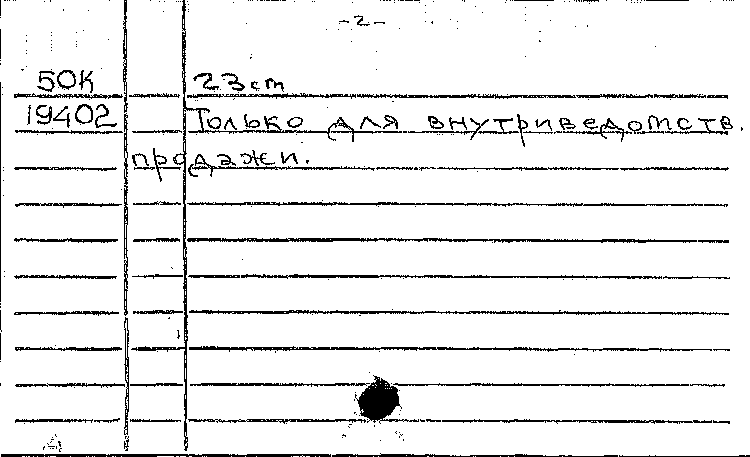 -2-
50К 23cm
19402 Только для внутриведомств.
продажи.